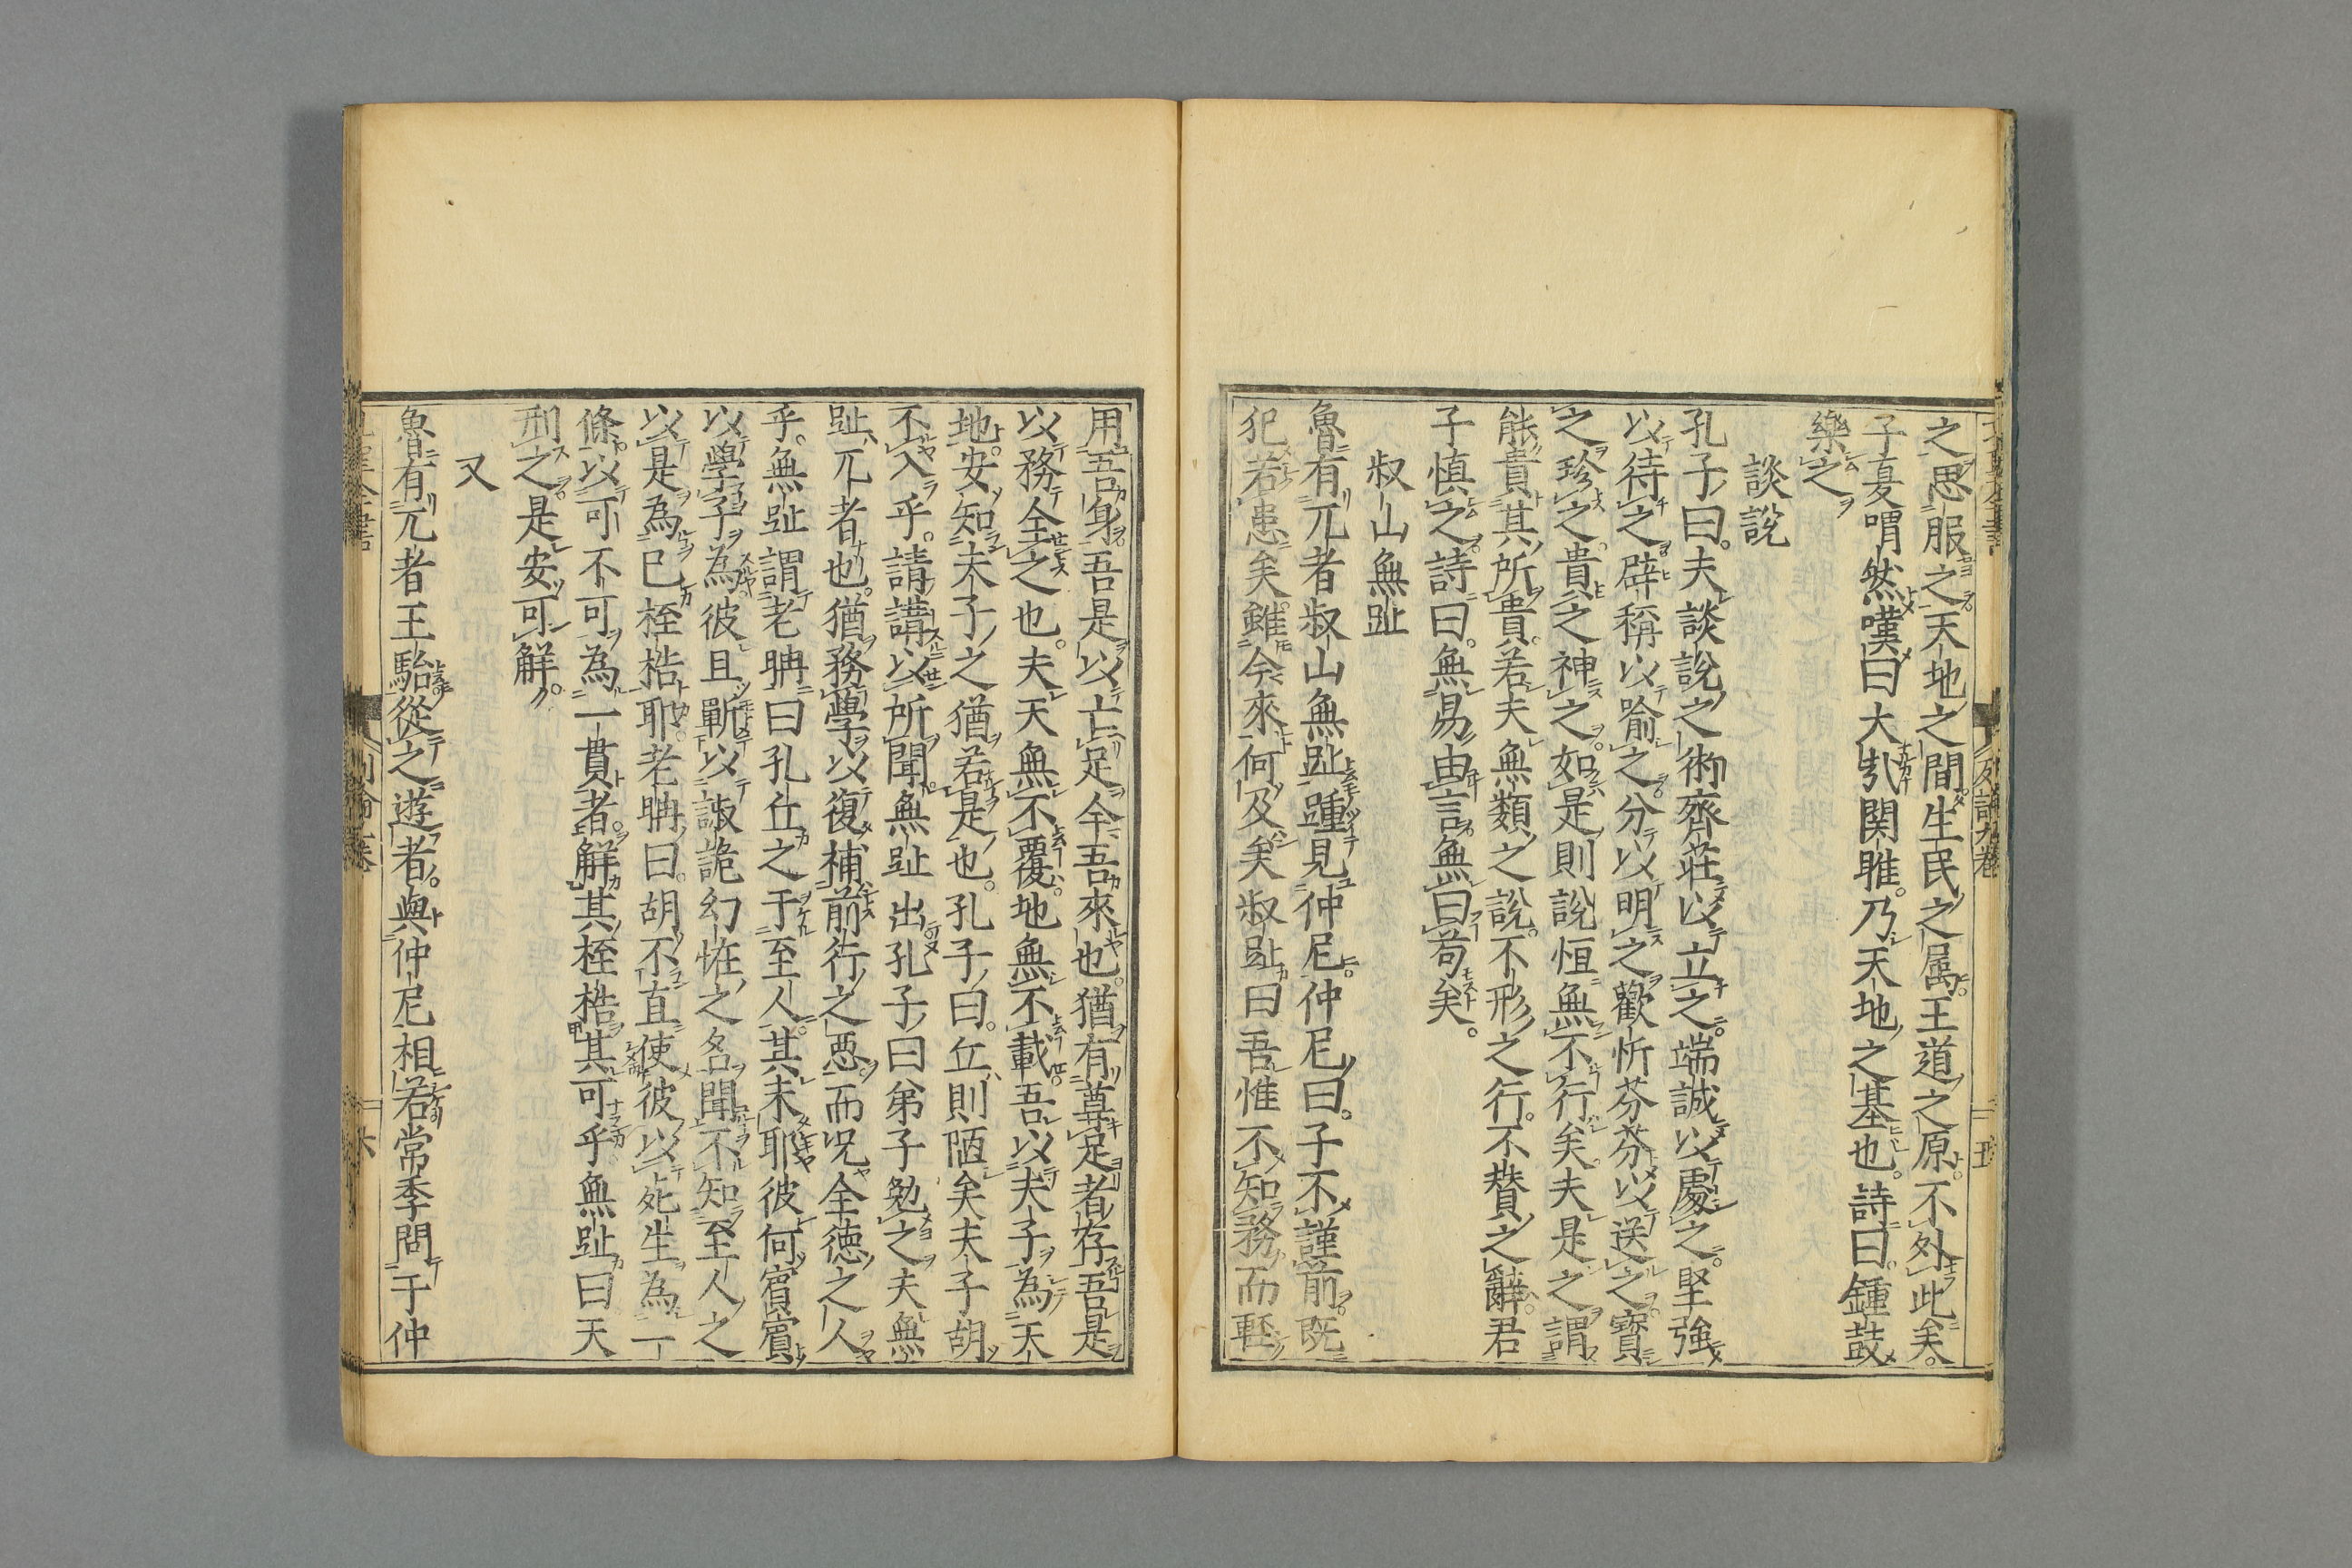 之思服之天地之間生民之属王道之原不外此矣
子夏喟然嘆曰大哉関雎乃天地之基也詩曰鍾鼓
樂之
談說
孔子曰夫談說之術齊莊以立之端誠以處之堅強
以待之辟稱以喻之分以明之歡忻芬芬以送之寳
之珍之貴之神之如是則說恒無不行矣夫是之謂
能貴其所貴若夫無類之說不形之行不賛之辭君
子慎之詩曰無易由言無曰苟矣
叔山無趾
魯有兀者叔山無趾踵見仲尼仲尼曰子不謹前既
犯若患矣雖今來何及矣叔趾曰吾惟不知務而軽
用吾身吾是以亡足今吾來也猶有尊足者存吾是
以務全之也夫天無不覆地無不載吾以夫子為天
地安知夫子之猶若是也孔子曰丘則陋矣夫子胡
不入乎請講以所聞無趾出孔子曰弟子勉之夫無
趾兀者也猶務學以復補前行之悪而况全徳之人
乎無趾謂老聃曰孔丘之于至人其未耶彼何賓賓
以學子為彼且蘄以諔詭幻恠之名聞不知至人之
以是為己桎梏耶老聃曰胡不直使彼以死生為一
條以可不可為一貫者解其桎梏其可乎無趾曰天
刑之是安可解
又
魯有兀者王駘從之遊者與仲尼相若常季問于仲